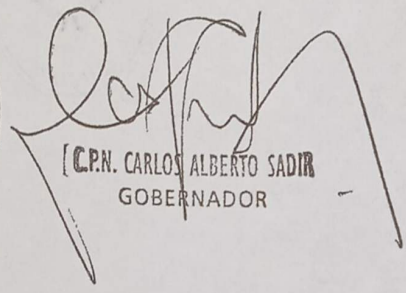 C.P.N. CARLOS ALBERTO SADIR
GOBERNADOR